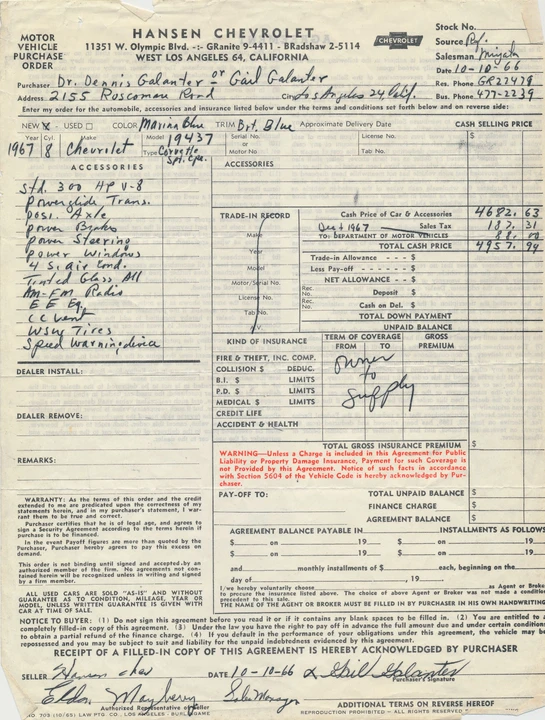 MOTOR VEHICLE PURCHASE ORDER
HANSEN CHEVROLET
11351 W. Olympic Blvd. -:- GRanite 9-4411 - BRadshaw 2-5114
WEST LOS ANGELES 64, CALIFORNIA
CHEVROLET
Stock No.
Source
Salesman
Date 10-10-66
Purchaser Dr. Dennis Galanter or Gail Galanter
Res. Phone GR22478
Address 2155 Roscomare Road City Los Angeles 24 Calif.
Bus. Phone 477-2239
Enter my order for the automobile, accessories and insurance listed below under the terms and conditions set forth below and on reverse side:
NEW X - USED □ COLOR Marina Blue TRIM Brt. Blue Approximate Delivery Date CASH SELLING PRICE
Year Cyl. Make Model 19437 Serial No. or Motor No. License No. $
1967 8 Chevrolet Type Corvette Spt. Cpe. Tab No.
ACCESSORIES
ACCESSORIES
Std. 300 HP V-8
Powerglide Trans.
Posi. Axle
Power Brakes
Power Steering
Power Windows
4 S. Air Cond.
Tinted Glass All
Am-Fm Radio
E E Eq.
C C Vent
WSW Tires
Speed Warning device
TRADE-IN RECORD
Make
Year
Model
Motor/Serial No.
License No.
Tab No.
Cash Price of Car & Accessories 4682.63
Dec 1967 Sales Tax 187.31
TO: DEPARTMENT OF MOTOR VEHICLES 88.00
TOTAL CASH PRICE 4957.94
Trade-in Allowance - - - $
Less Pay-off - - - - - $
NET ALLOWANCE - - $
Rec. No. Deposit $
Rec. No. Cash on Del. $
TOTAL DOWN PAYMENT
UNPAID BALANCE
KIND OF INSURANCE TERM OF COVERAGE FROM TO GROSS PREMIUM
FIRE & THEFT, INC. COMP.
COLLISION $ DEDUC.
B.I. $ LIMITS
P.D. $ LIMITS
MEDICAL $ LIMITS
CREDIT LIFE
ACCIDENT & HEALTH
owner
to
supply
DEALER INSTALL:
DEALER REMOVE:
REMARKS:
TOTAL GROSS INSURANCE PREMIUM $
WARNING—Unless a Charge is included in this Agreement for Public
Liability or Property Damage Insurance, Payment for such Coverage is
not Provided by this Agreement. Notice of such facts in accordance
with Section 5604 of the Vehicle Code is hereby acknowledged by Pur-
chaser.
PAY-OFF TO: TOTAL UNPAID BALANCE $
FINANCE CHARGE $
AGREEMENT BALANCE $
AGREEMENT BALANCE PAYABLE IN INSTALLMENTS AS FOLLOWS
$ on 19 $ on 19
$ on 19 $ on 19
and monthly installments of $ each, beginning on the
day of , 19 .
I/we hereby voluntarily choose as Agent or Broker
to procure the insurance listed above. The choice of above Agent or Broker was not made a condition
precedent to this sale.
THE NAME OF THE AGENT OR BROKER MUST BE FILLED IN BY PURCHASER IN HIS OWN HANDWRITING
WARRANTY: As the terms of this order and the credit
extended to me are predicated upon the correctness of my
statements herein, and in my purchaser's statement, I war-
rant them to be true and correct.
Purchaser certifies that he is of legal age, and agrees to
sign a Security Agreement according to the terms herein if
purchase is to be financed.
In the event Payoff figures are more than quoted by the
Purchaser, Purchaser hereby agrees to pay this excess on
demand.
This order is not binding until signed and accepted by an
authorized member of the firm. No agreements not con-
tained herein will be recognized unless in writing and signed
by a firm member.
ALL USED CARS ARE SOLD "AS-IS" AND WITHOUT
GUARANTEE AS TO CONDITION, MILEAGE, YEAR OR
MODEL, UNLESS WRITTEN GUARANTEE IS GIVEN WITH
CAR AT TIME OF SALE.
NOTICE TO BUYER: (1) Do not sign this agreement before you read it or if it contains any blank spaces to be filled in. (2) You are entitled to a
completely filled-in copy of this agreement. (3) Under the law you have the right to pay off in advance the full amount due and under certain conditions
to obtain a partial refund of the finance charge. (4) If you default in the performance of your obligations under this agreement, the vehicle may be
repossessed and you may be subject to suit and liability for the unpaid indebtedness evidenced by this agreement.
RECEIPT OF A FILLED-IN COPY OF THIS AGREEMENT IS HEREBY ACKNOWLEDGED BY PURCHASER
SELLER Hansen Chev DATE 10-10-66 Gail Galanter
Purchaser's Signature
Eldon Mayberry Sales Manager
Authorized Representative of Seller
ADDITIONAL TERMS ON REVERSE HEREOF
NO. 705 (10/65) LAW PTG. CO., LOS ANGELES - BURLINGAME
REPRODUCTION PROHIBITED - ALL RIGHTS RESERVED